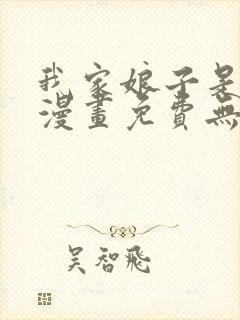 我家娘子是
漫畫免費無
吴智飛